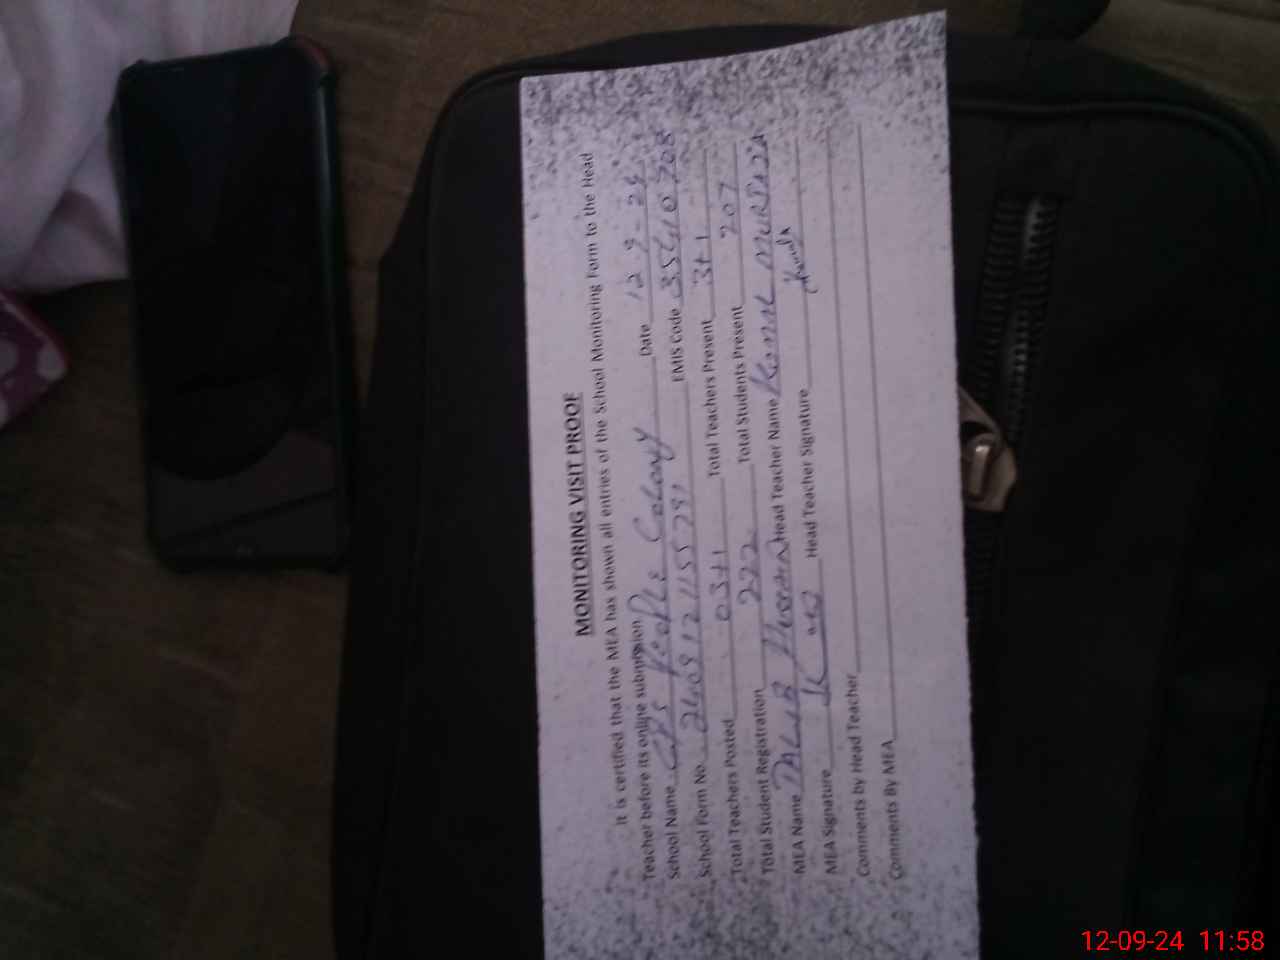 MONITORING VISIT PROOF
It is certified that the MEA has shown all entries of the School Monitoring Form to the Head
Teacher before its online submission
School Name GPS People Colony Date 12-9-24
School Form No. EMIS Code 35410708
Total Teachers Posted 03+1 Total Teachers Present 3+1
Total Student Registration 222 Total Students Present 207
MEA Name TALIB Hussain Head Teacher Name Komal MURTAZA
MEA Signature Head Teacher Signature
Comments by Head Teacher
Comments By MEA
12-09-24 11:58